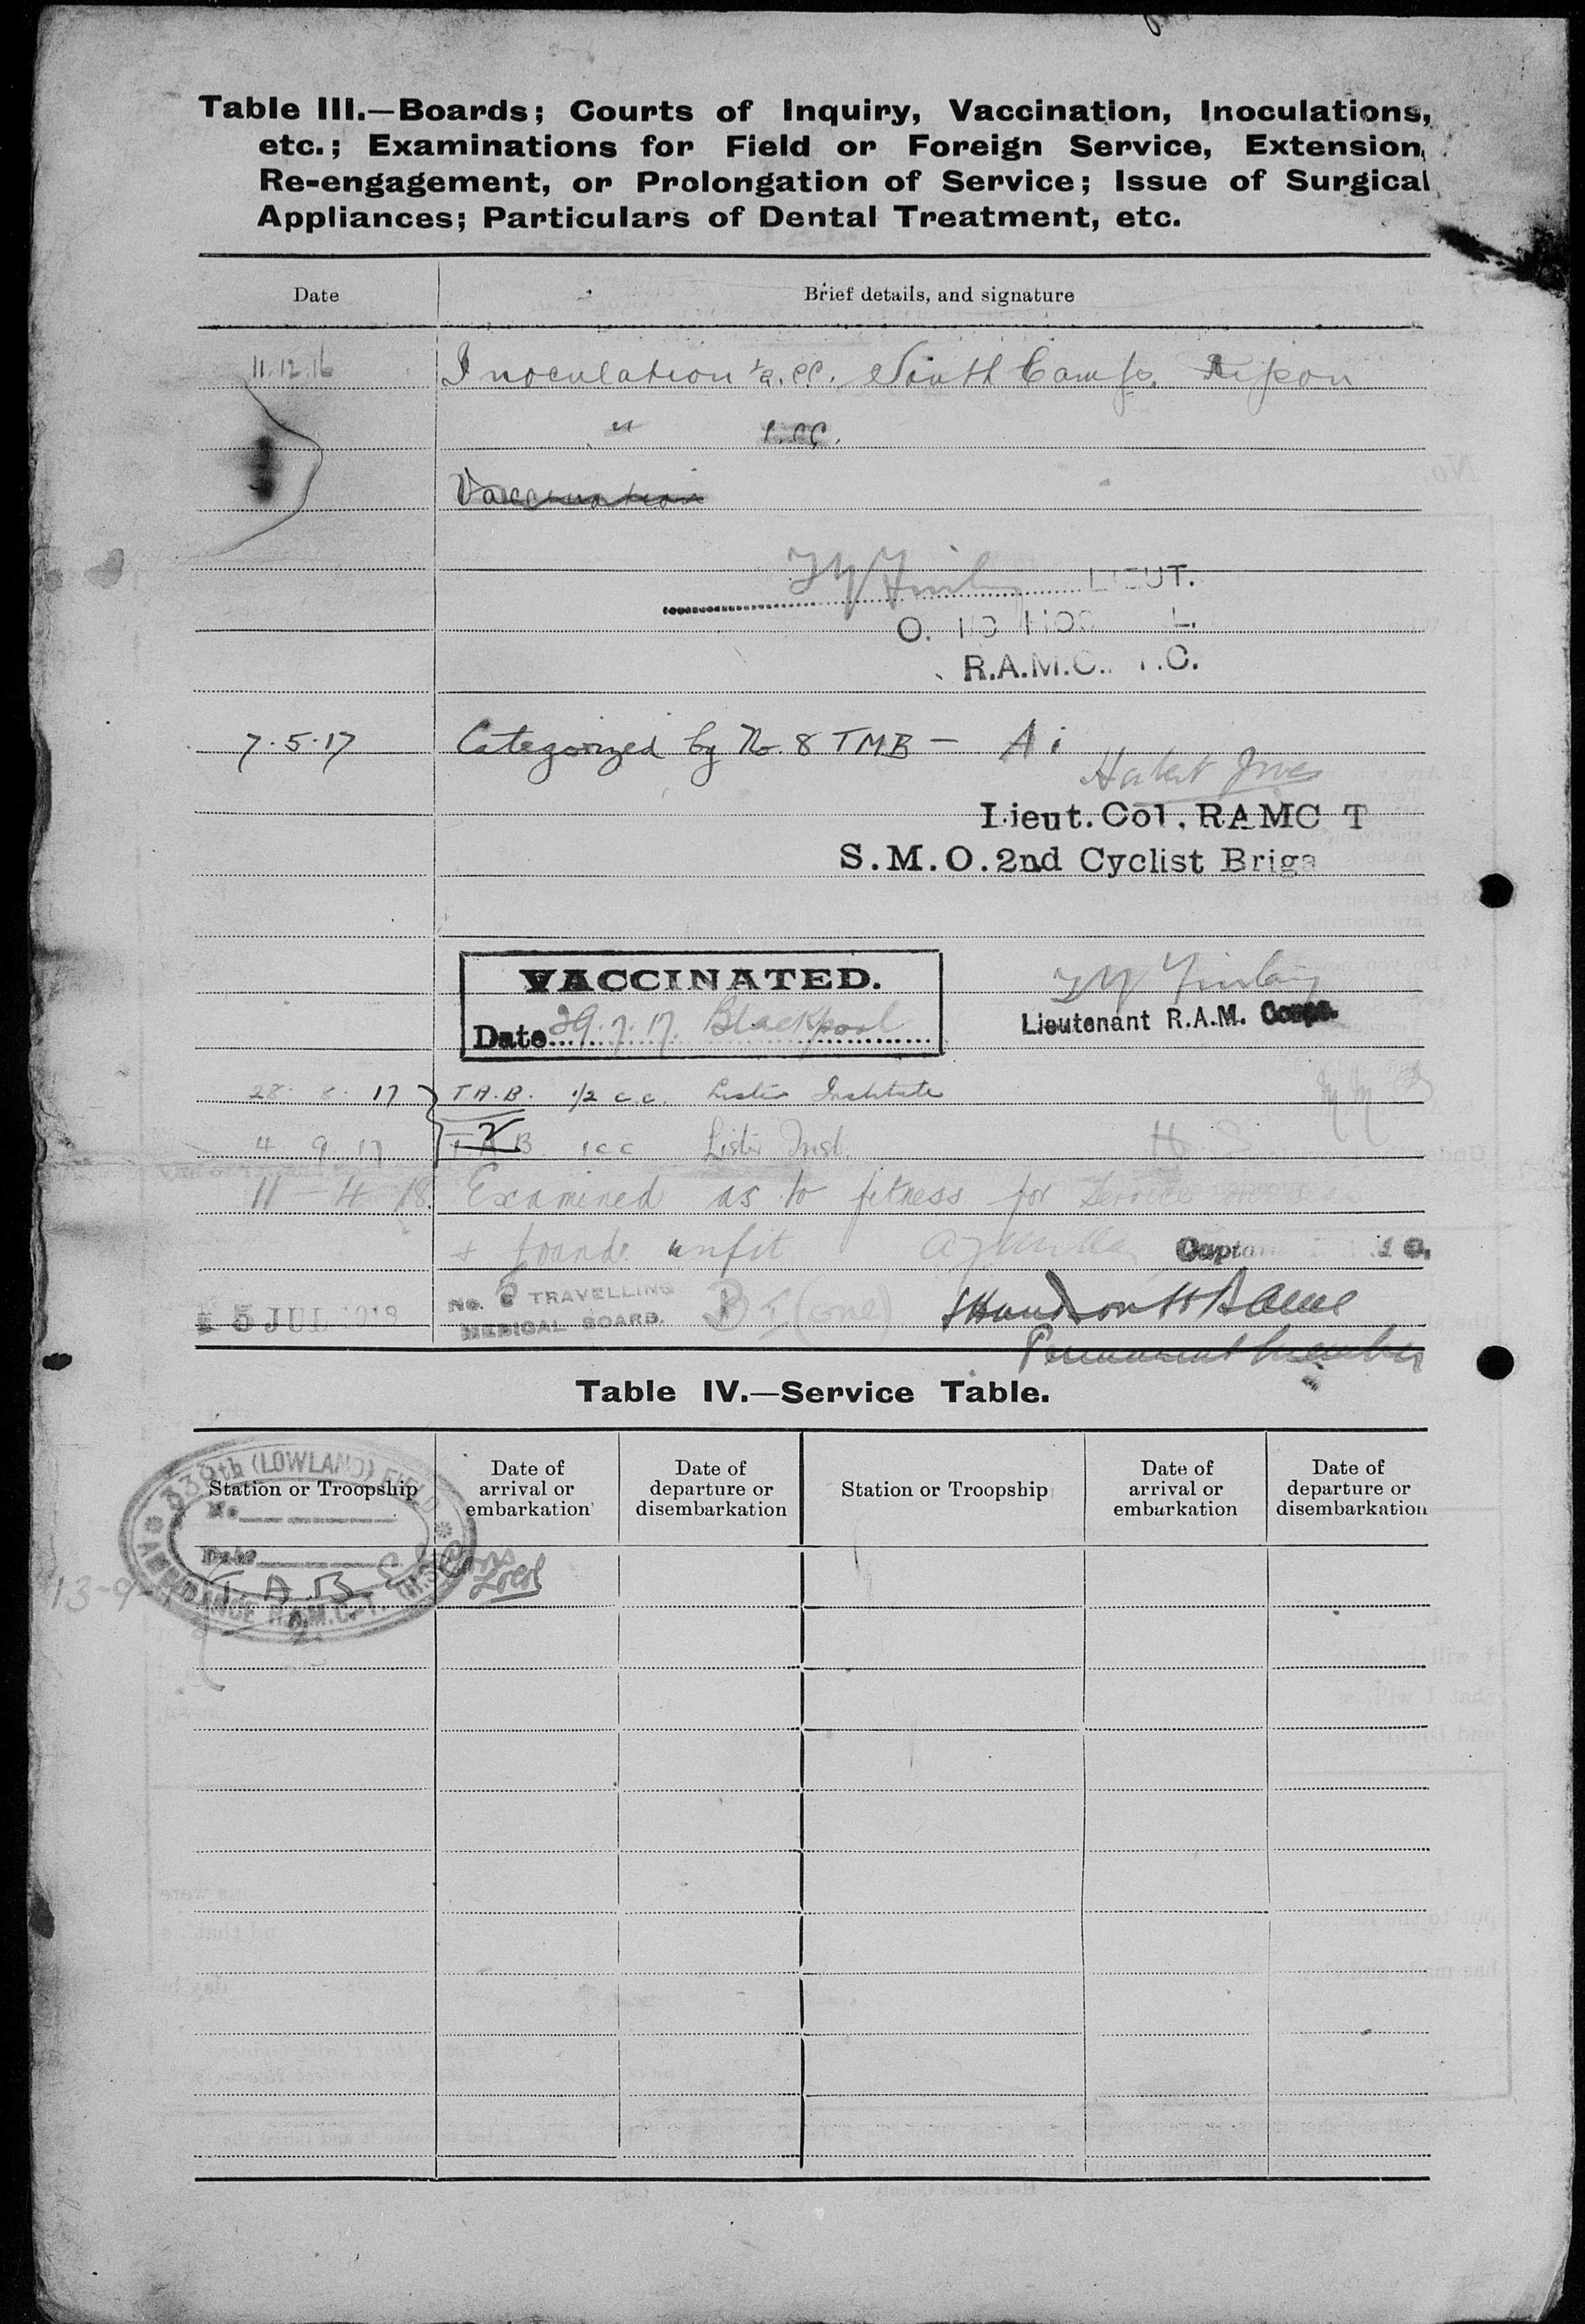 Table III.—Boards; Courts of Inquiry, Vaccination, Inoculations,
etc.; Examinations for Field or Foreign Service, Extension,
Re-engagement, or Prolongation of Service; Issue of Surgical
Appliances; Particulars of Dental Treatment, etc.
Date
Brief details, and signature
11.12.16 Inoculation ½.cc. South Camp, Ripon
" 1.cc.
Vaccination
LIEUT.
O.
R.A.M.C.
7.5.17 Categorized by No. 8 TMB — A i
Lieut. Col. RAMC T
S.M.O. 2nd Cyclist Briga
VACCINATED.
Date 29.7.17. Blackpool
Lieutenant R.A.M. Corps.
28. 8. 17 T.A.B. 1/2 c.c. Lister Institute
4 9 17 TAB 1cc Lister Inst.
11-4-18. Examined as to fitness for service
& found unfit
5 JUL 1918 No. TRAVELLING
MEDICAL BOARD. B I (one)
Permanent Member
Table IV.—Service Table.
Station or Troopship
Date of arrival or embarkation
Date of departure or disembarkation
Station or Troopship
Date of arrival or embarkation
Date of departure or disembarkation
(LOWLAND) FIELD
AMBULANCE R.A.M.C. T.
No.
Date
13-9- T.A.B.